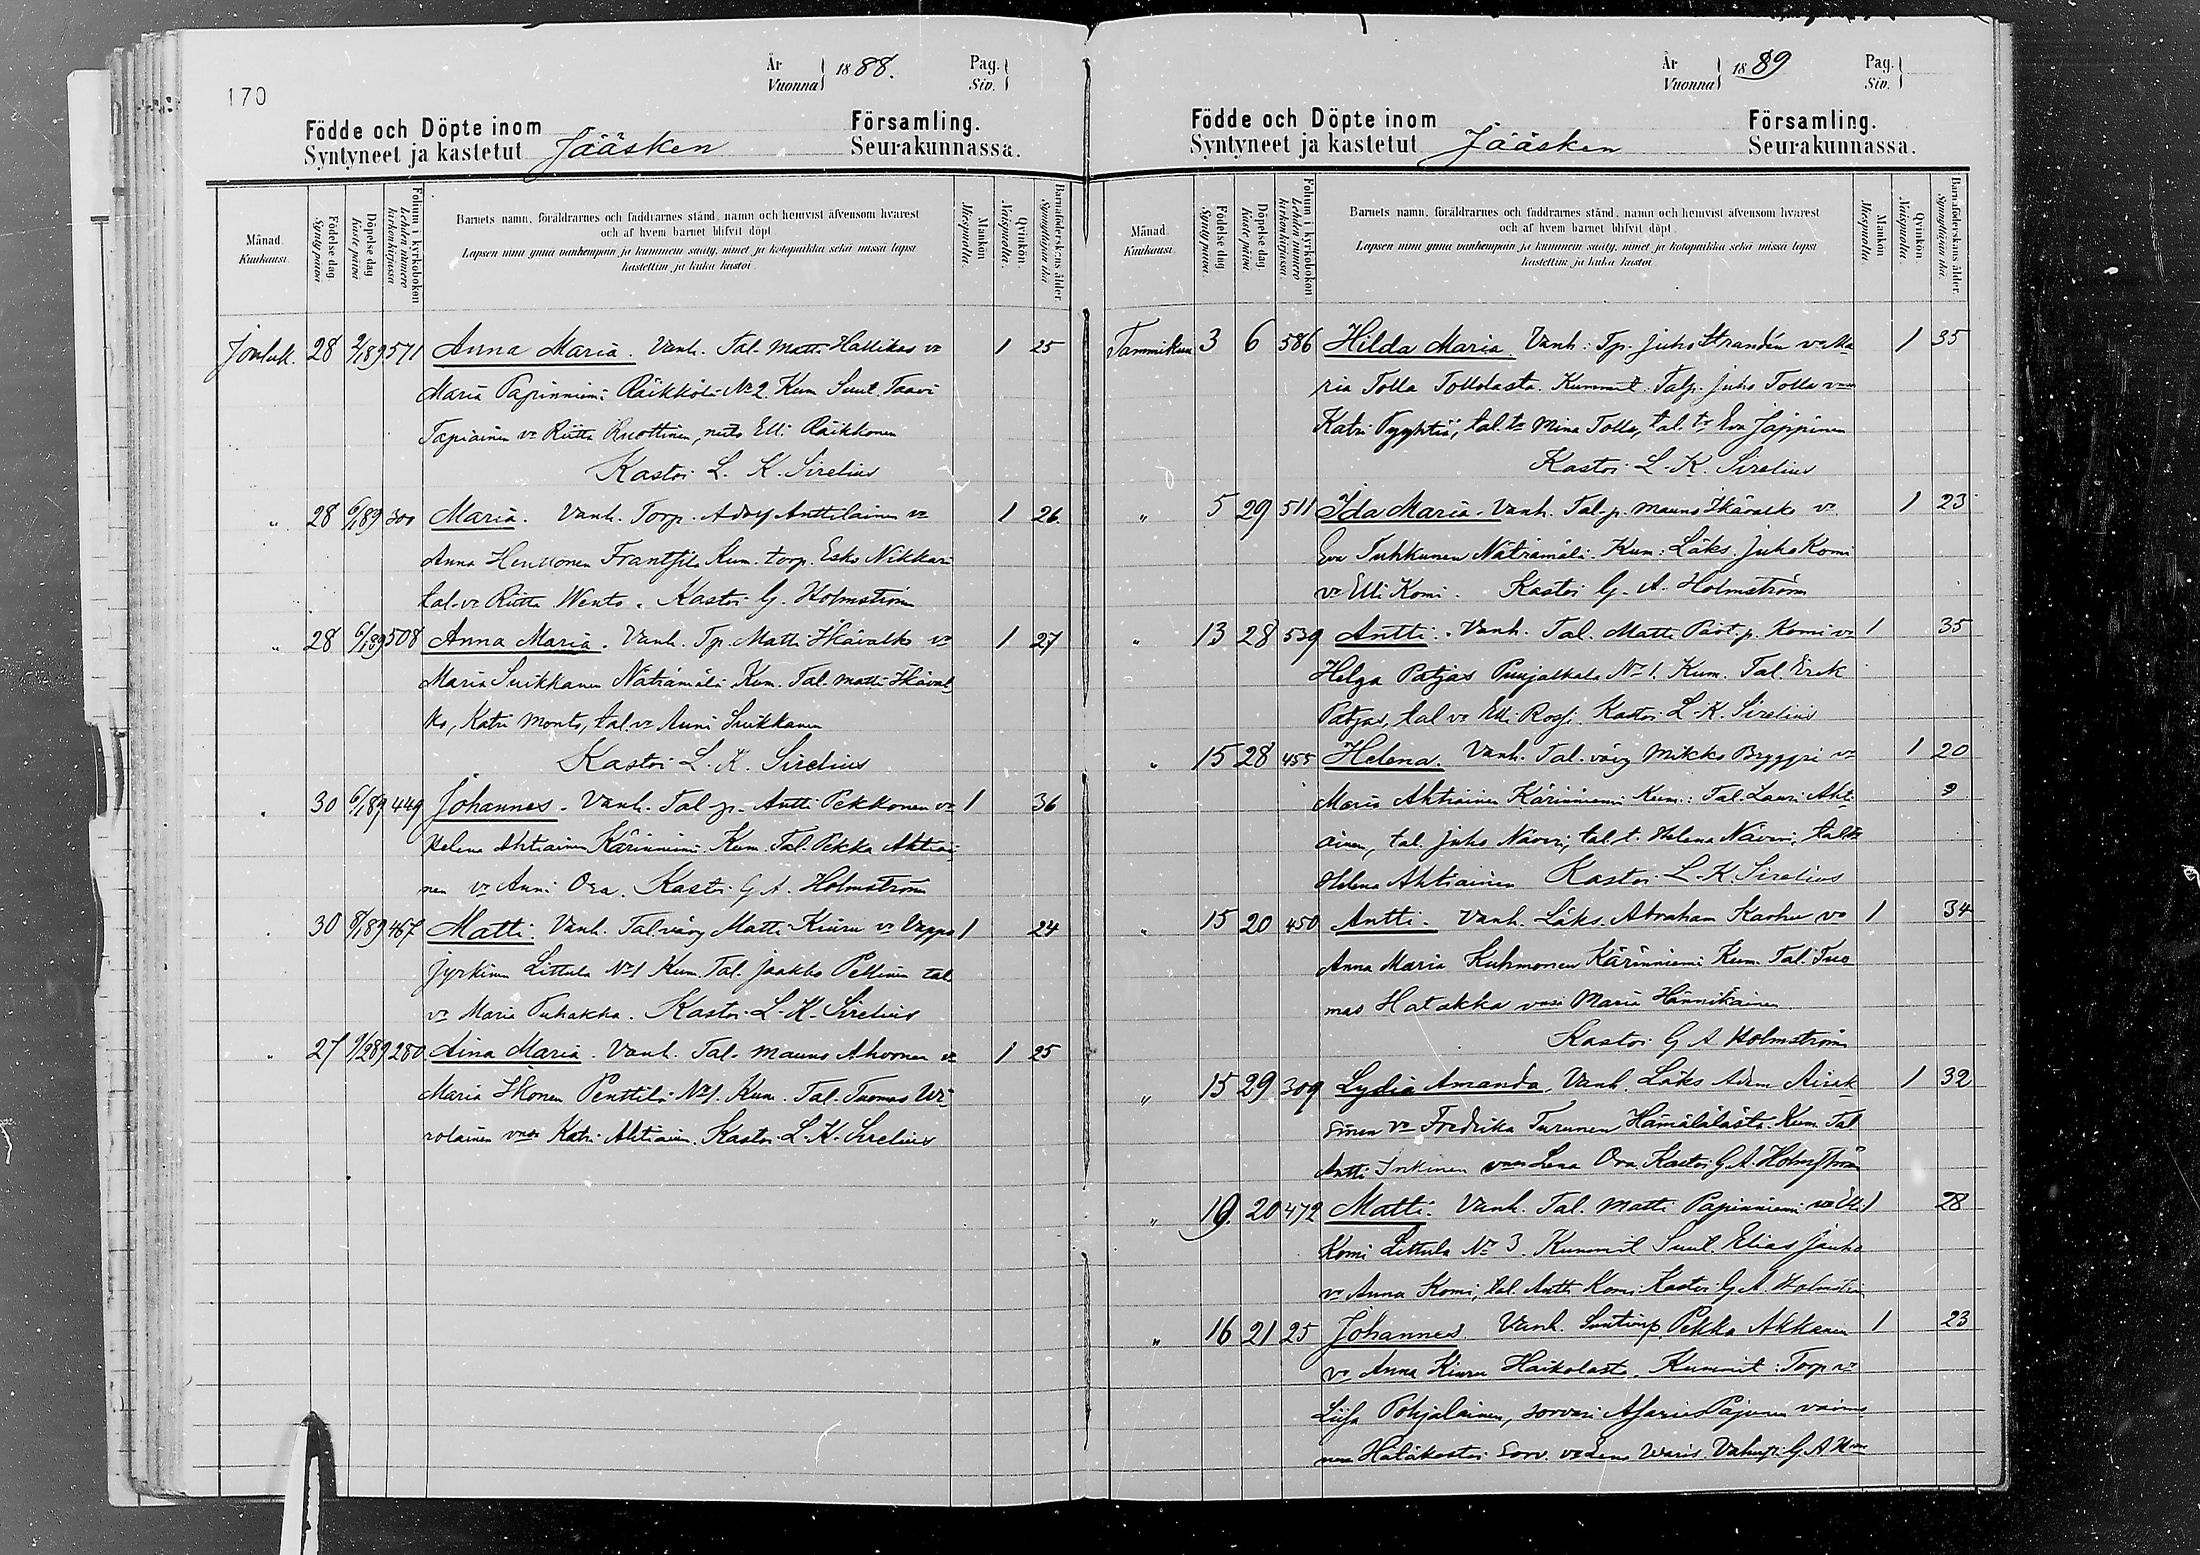 170
År Vuonna 1888. Pag. Siv.
Födde och Döpte inom Församling.
Syntyneet ja kastetut Jääsken Seurakunnassa.
Månad. Kuukausi.
Födelse dag. Synty päivä
Döpelse dag Kaste päivä
Folium i kyrkoboken Lehden numero kirkonkirjassa
Barnets namn, föräldrarnes och faddrarnes stånd, namn och hemvist äfvensom hvarest
och af hvem barnet blifvit döpt.
Lapsen nimi ynnä vanhempain ja kummein sääty, nimet ja kotopaikka sekä missä lapsi
kastettiin ja kuka kastoi
Mankön. Miespuolta.
Qvinkön. Naispuolta.
Barnaföderskans ålder. Synnyttäjän ikä
Jouluk. 28 2/1 89 571 Anna Maria. Vanh. Tal. Matti Hallikas vo 1 25
Maria Papinniemi Räikkölä No 2. Kum. Suut. Taavi
Tapiainen vo Riitta Ruottinen, neito Elli Räikkonen
Kastoi L. K. Sirelius
" 28 6/1 89 300 Maria. Vanh. Torp. Adolf Anttilainen vo 1 26
Anna Henttonen Frantsila Kum. torp. Esko Nikkari
tal. vo Riitta Wento. Kastoi G. Holmström
" 28 6/1 89 508 Anna Maria. Vanh. Tp. Matti Ikävalko vo 1 27
Maria Suikkanen Näträmälä Kum. Tal. Matti Ikäval
ko, Katri Monto, tal. vo Anni Suikkanen
Kastoi L. K. Sirelius
" 30 6/1 89 449 Johannes. Vanh. Tal. p. Antti Pekkonen vo 1 36
Helena Ahtiainen Kärinniemi. Kum. Tal. Pekka Ahtiai
nen vo Anni Ora. Kastoi G. A. Holmström
" 30 8/1 89 467 Matti. Vanh. Tal. väv Matti Kiuru vo Vappu 1 24
Jyrkinen Littula No 1 Kum. Tal. Jaakko Pellinen tal
vo Maria Puhakka. Kastoi L. K. Sirelius
" 27 9/2 89 280 Aina Maria. Vanh. Tal. Mauno Ahvonen vo 1 25
Maria Ikonen Penttilä No 1. Kum. Tal. Tuomas Wi-
rolainen vmo Katri Ahtiain. Kastoi L. K. Sirelius
År Vuonna 1889 Pag. Siv.
Födde och Döpte inom Församling.
Syntyneet ja kastetut Jääsken Seurakunnassa.
Månad. Kuukausi.
Födelse dag Synty päivä.
Döpelse dag Kaste päivä
Folium i kyrkoboken Lehden numero kirkonkirjassa
Barnets namn, föräldrarnes och faddrarnes stånd, namn och hemvist äfvensom hvarest
och af hvem barnet blifvit döpt.
Lapsen nimi ynnä vanhempain ja kummein sääty, nimet ja kotopaikka sekä missä lapsi
kastettiin ja kuka kastoi
Mankön Miespuolta
Qvinkön Naispuolta.
Barnaföderskans ålder. Synnyttäjän ikä.
Tammikuu 3 6 586 Hilda Maria. Vanh: Tp. Juho Strandén vo Ma 1 35
ria Tolla Tollolasta. Kummit. Talp. Juho Tolla vmo
Katri Pyyhtiä, tal. tr Mina Tolla, tal. tr Eva Jäppinen
Kastoi L. K. Sirelius
" 5 29 511 Ida Maria. Vanh. Tal. p. Mauno Ikävalko vo 1 23
Eva Tuhkunen Näträmälä. Kum: Läks. Juho Komi
vo Elli Komi. Kastoi G. A. Holmström
" 13 28 539 Antti. Vanh. Tal. Matti Päot. p. Komi vo 1 35
Helga Patjas Punjalkala No 1. Kum. Tal. Erik
Patjas, tal vo Elli Rossi. Kastoi L. K. Sirelius
" 15 28 455 Helena. Vanh. Tal. väv Mikko Bryggri vo 1 20
Maria Ahtiainen Kärinniemi Kum: Tal. Lauri Ahti
ainen, tal. Juho Näveri, tal. t. Helena Näveri, tal. tr
Helena Ahtiainen Kastoi L. K. Sirelius
" 15 20 450 Antti. Vanh. Läks. Abraham Karhu vo 1 34
Anna Maria Kuhmonen Kärinniemi Kum. Tal. Tuo
mas Hatakka vmo Maria Hännikäinen
Kastoi G A Holmström
" 15 29 309 Lydia Amanda. Vanh. Läks Adam Airak 1 32
sinen vo Fredrika Turunen Hämäläläistä. Kum. Tal
Antti Inkinen vmo Lena Ora. Kastoi G. A. Holmström
" 19. 20 472 Matti. Vanh. Tal. Matti Papinniemi vo Elli 1 28
Komi Littula No 3. Kummit Suut. Elias Jauho
vo Anna Komi, tal. Antti Komi. Kastoi G. A. Holmström
" 16 21 25 Johannes Vanh. Pekka Akkanen 1 23
vo Anna Kiuru Haikolasta. Kummit: Torp vo
Liisa Pohjalainen, sorvari Pajunen vaimo
nen Hätäkastoi Sorv. vo Lena Waris. G A Hm